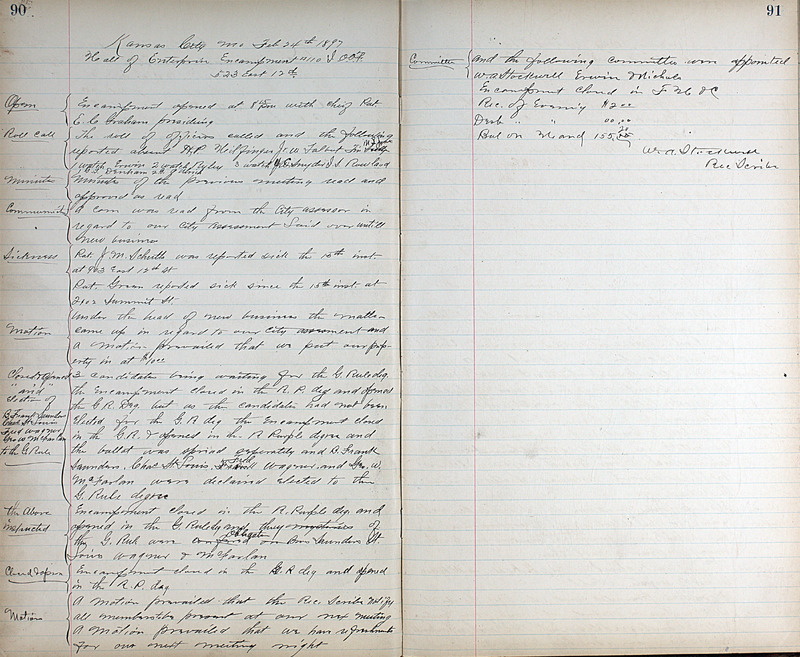 90
Kansas City Mo Feb 24th 1897
Hall of Enterprise Encampment No 10 I.O.O.F.
523 East 12th
Open
Encampment opened at 8 with chief Pat
C. C. Graham presiding
Roll Call
The roll of officers called and the following
reported absent H.P. Hilfinger J.W. Talbut
watch Erwin 2 watch Ryley 3 watch Snyder I.S. Rowland
Minutes
Minutes of the previous meeting read and
approved as read
Communict
A com was read from the City assessor in
regard to our City assessment laid over untill
New business
Sickness
Pat. J. M. Schutt was reported sick the 15th inst
at 913 East 12th St
Pat. Green reported sick since the 15th inst at
2102 Summit St
Under the head of new business the matter
Motion
came up in regard to our City assessment and
a motion prevailed that we put our prop-
erty in at $100
Closed & opened
3 candidates being waiting for the G. Rule deg
the Encampment closed in the R. P. deg and opened
Election of
the G R Deg. but as the candidates had not been
B. Frank Saunders
elected for the G. R deg the Encampment closed
Chas St. Louis
Fred Wagner
in the G.R. & opened in the R Purple degree and
Geo W McFarlan
the ballot was spread seperately and B. Frank
to the G Rule
Saunders, Chas. St. Louis, Fred Wagner, and Geo. W.
McFarlan were declared elected to the
G. Rule degree
the Above
Encampment closed in the R. Purple deg and
instructed
opened in the G Rule deg and they mysteries of
the G. Rule were confered on Bros Saunders St.
Louis Wagner & McFarlan
Closed & open
Encampment closed in the G. R deg and opened
in the R. P. deg
Motion
A Motion prevailed that the Rec. Scribe notify
all members to be present at our next meeting
A Motion prevailed that we have refreshments
for our next meeting night
91
Committee
and the following committee was appointed
W A Stockwell Erwin Michels
Encampment closed in F H & C
Rec. of Evening
" "
Bal on Hand 155
W. A. Stockwell
Rec Scribe